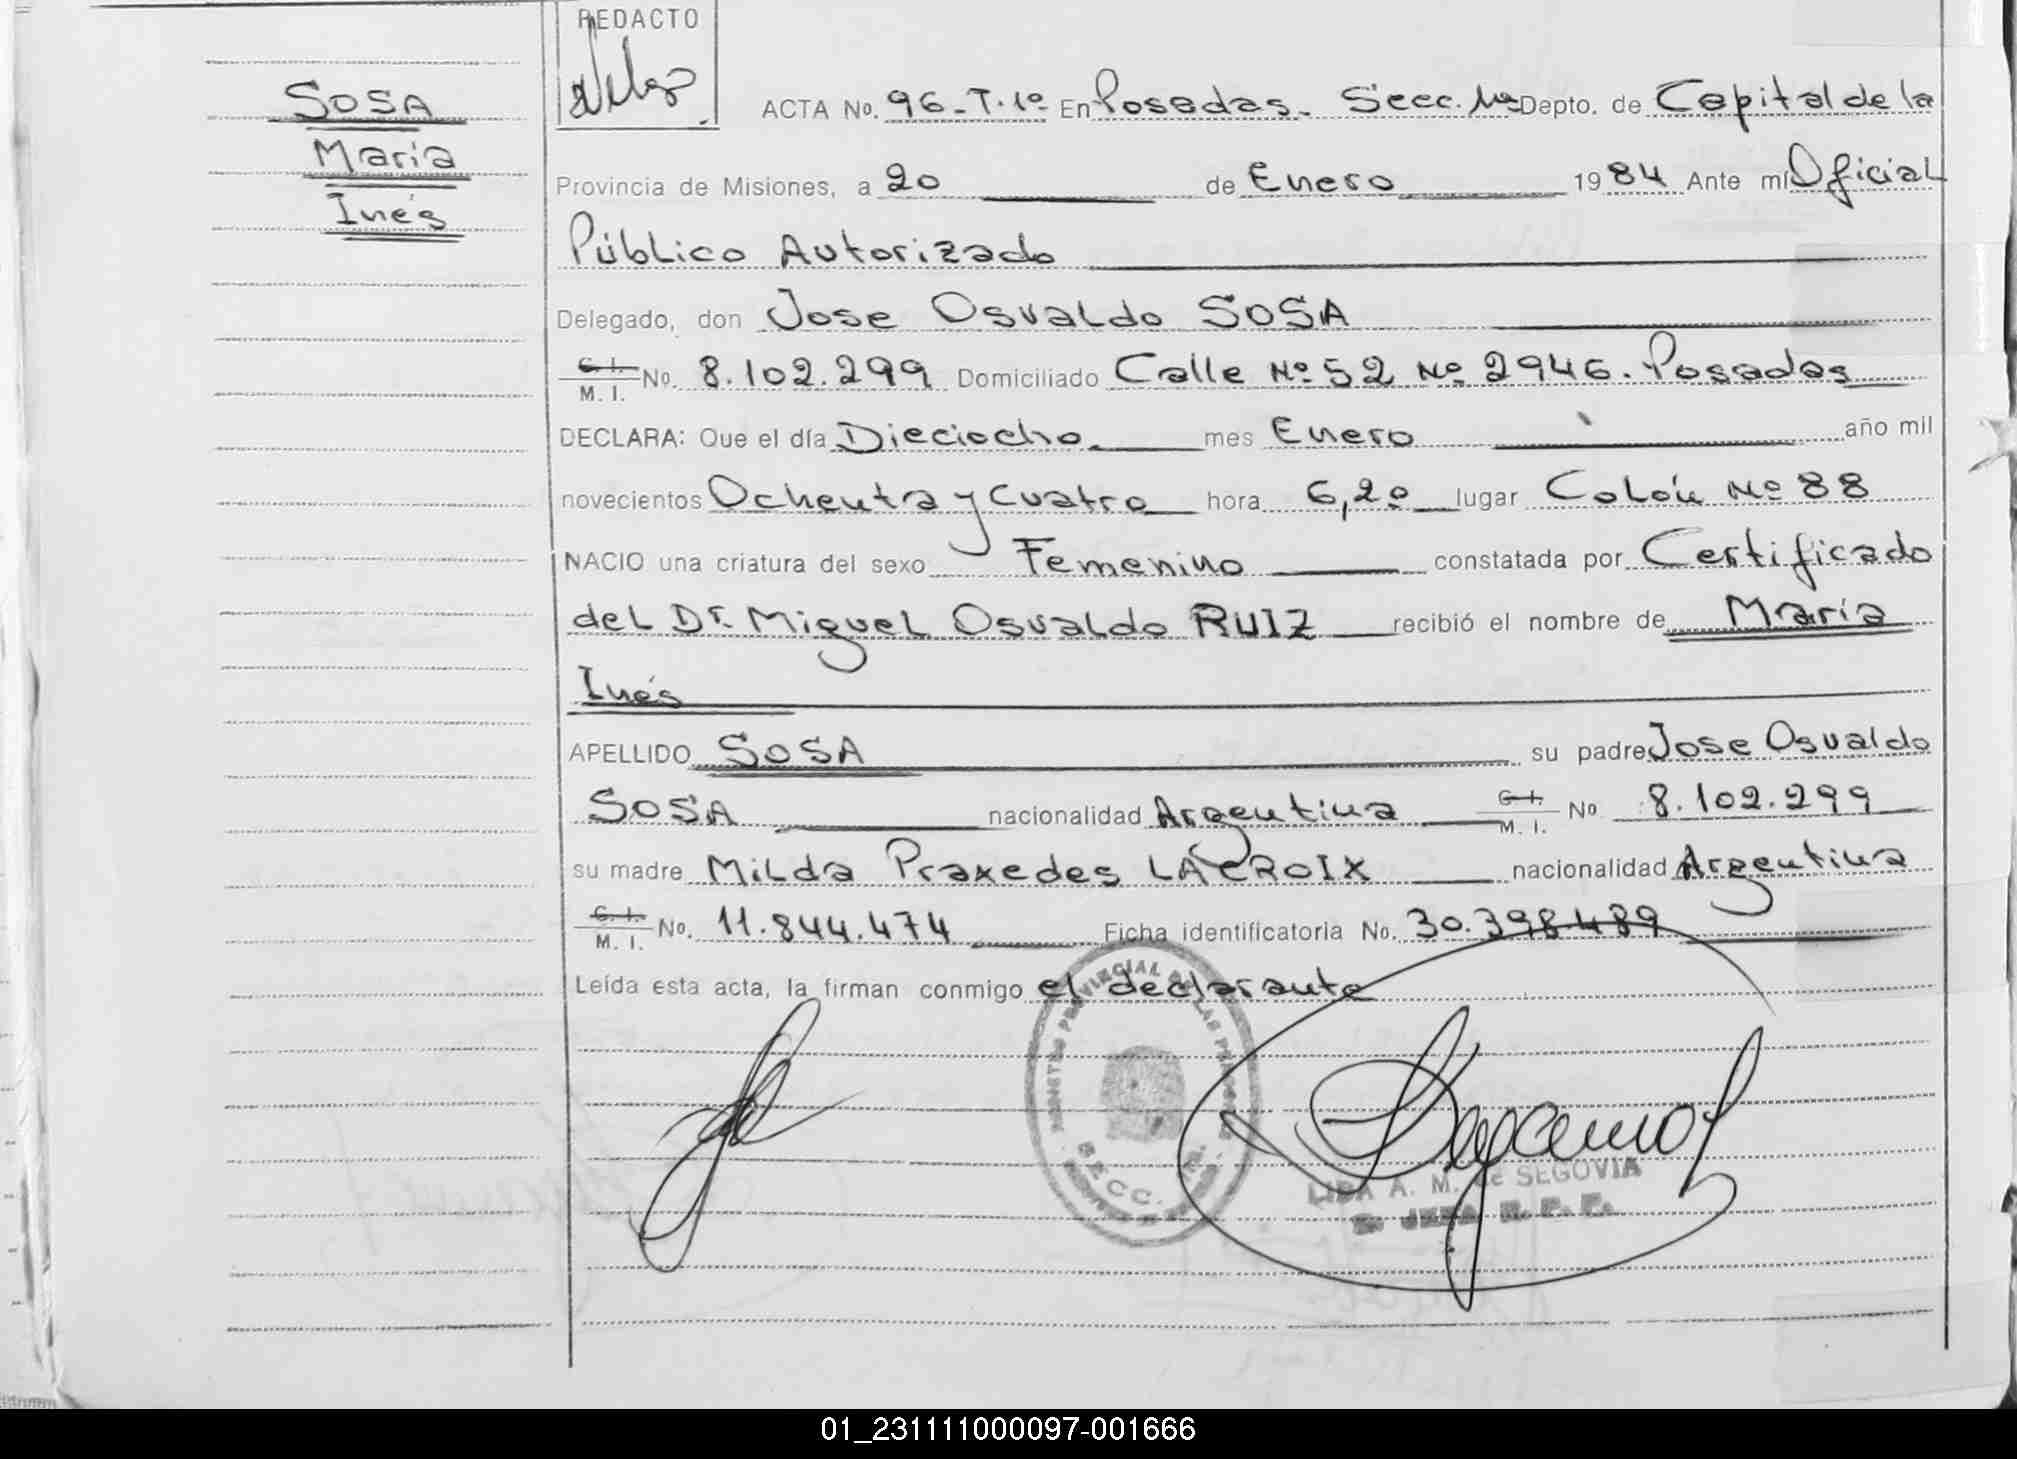 REDACTO
SOSA
María
Inés
ACTA No. 96-T.1º En Posadas. Secc. 1ª Depto. de Capital de la
Provincia de Misiones, a 20 de Enero 1984 Ante mí Oficial
Público Autorizado
Delegado, don Jose Osvaldo SOSA
C. I.
M. I. No. 8.102.299 Domiciliado Calle Nº 52 Nº 2946. Posadas
DECLARA: Que el día Dieciocho mes Enero año mil
novecientos Ochenta y Cuatro hora 6,20 lugar Colón Nº 88
NACIO una criatura del sexo Femenino constatada por Certificado
del Dr. Miguel Osvaldo RUIZ recibió el nombre de María
Inés
APELLIDO SOSA su padre Jose Osvaldo
SOSA nacionalidad Argentina C. I. M. I. No 8.102.299
su madre Milda Praxedes LACROIX nacionalidad Argentina
C. I.
M. I. No. 11.844.474 Ficha identificatoria No. 30.398.489
Leída esta acta, la firman conmigo el declarante
REGISTRO PROVINCIAL DE LAS PERSONAS
SECC.
LIDA A. M. de SEGOVIA
JEFA R. P. P.
01_231111000097-001666